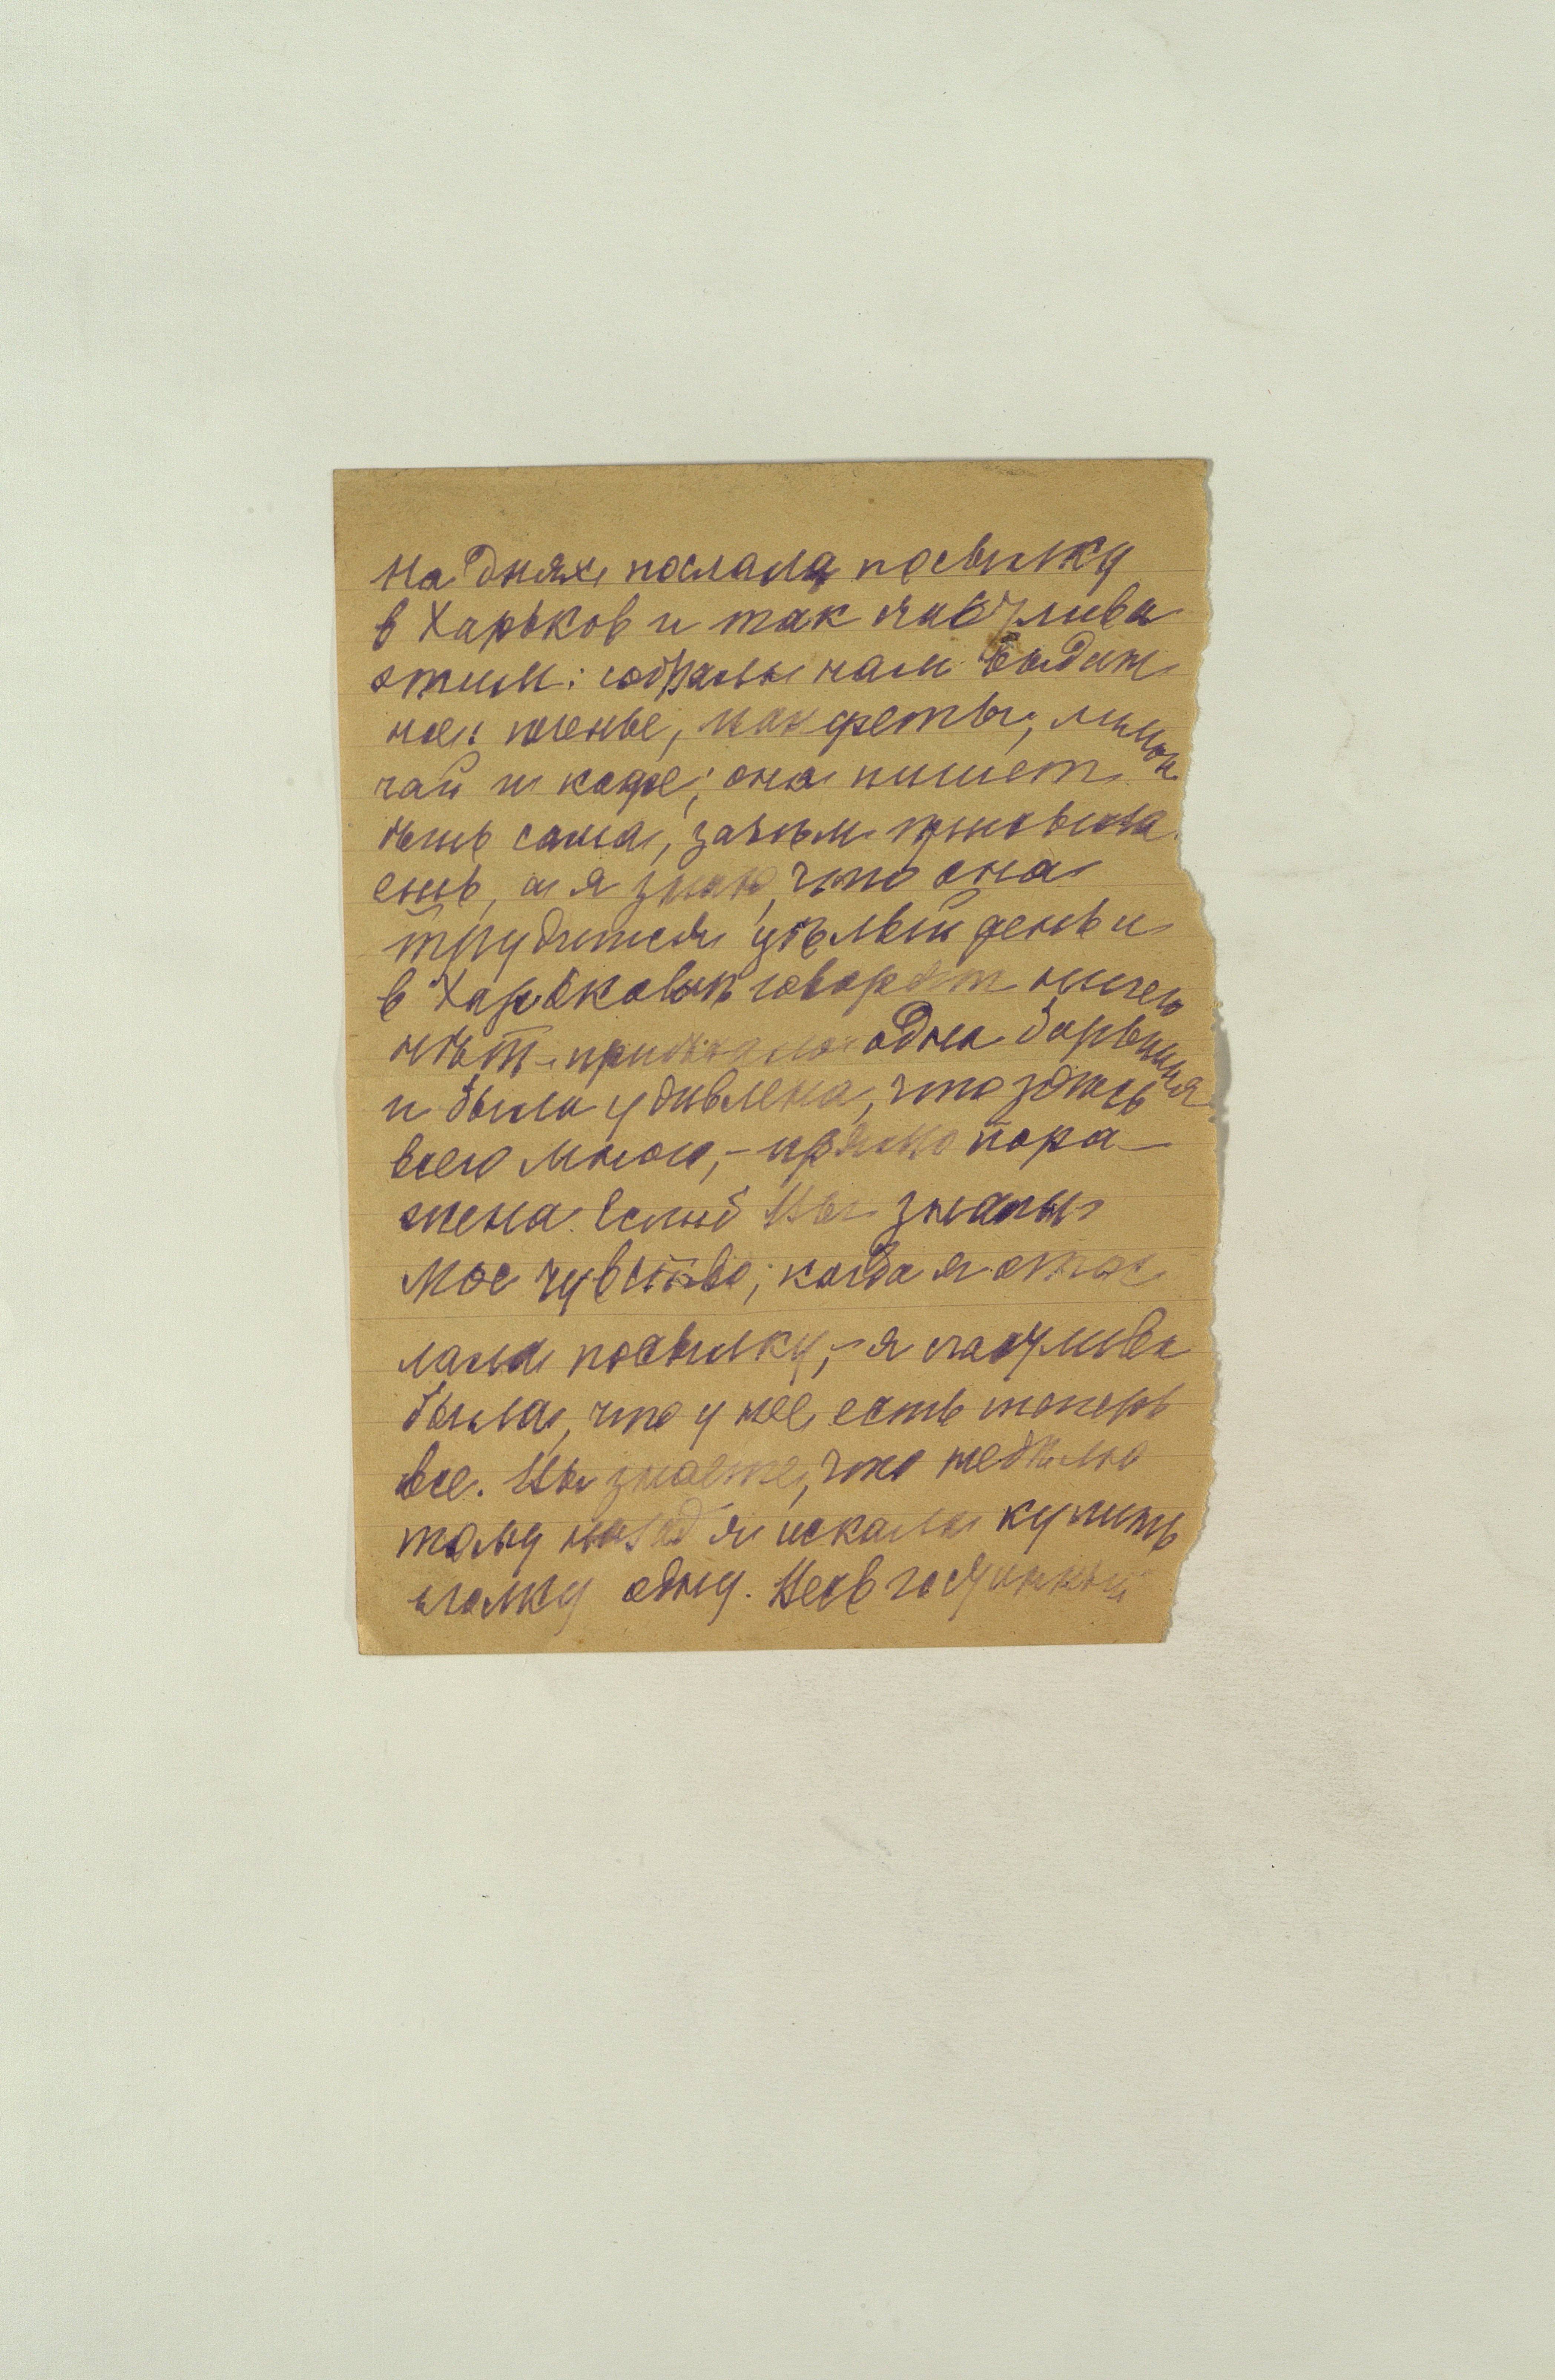 на днях послала посылку
в Харьков и так счастлива
этим: собрала нам выдан
ное: печенье, конфеты, лимон
чай и кофе; она пишет
ешь сама, зачѣм
ешь, а я знаю, что она
трудится цѣлый день и
в Харьковѣ говорят ничего
нѣт – приѣхала одна барышня
и была удивлена, что здѣсь
всего много, – прямо пора-
жена. Еслиб Вы знали
мое чувство, когда я отос
лала посылку, – я счастлива
была, что у нее есть теперь
все. Вы знаете, что недѣлю
тому назад я искала купить
иголку одну. Весь гостинный